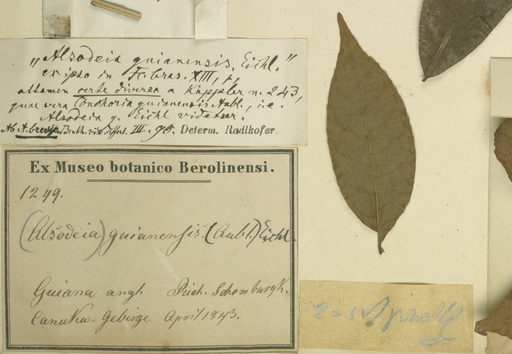 „Alsodeia guianensis, Eichl."
ex ipso in Fl. bras. XIII, 1,
attamen certe diversa a Kappler n. 243,
quae vera Conohoria guianensis Aubl., i.e.
Alsodeia g. Eichl videtur.
III. 90. Determ. Radlkofer.
Ex Museo botanico Berolinensi.
1249.
(Alsodeia) guianensis (Aubl.) Eichl.
Guiana angl. Rich. Schomburgk.
Canuku-Gebirge. April 1843.